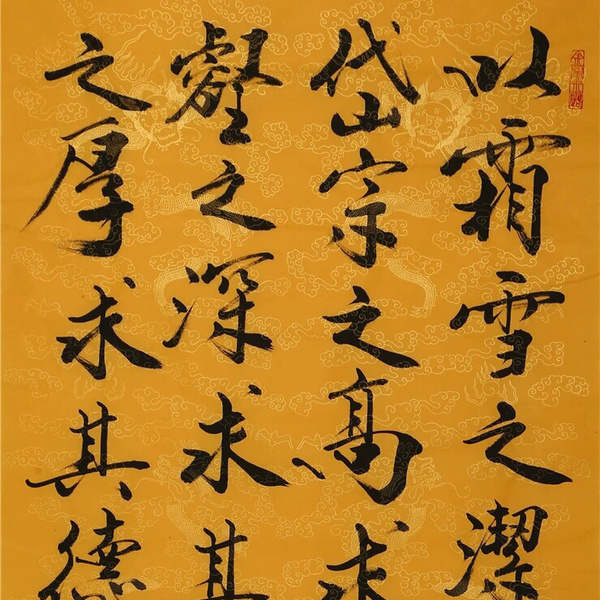 以霜雪之潔
岱宗之高求
壑之深求其
之厚求其德